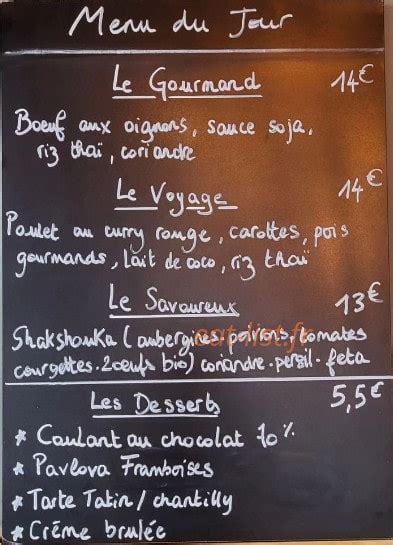 Menu du Jour
Le Gourmand 14€
Boeuf aux oignons, sauce soja,
riz thaï, coriandre
Le Voyage 14€
Poulet au curry rouge, carottes, pois
gourmands, lait de coco, riz thaï
Le Savoureux 13€
Shakshouka (aubergines, poivrons, tomates
courgettes. 2 oeufs bio) coriandre. persil. feta
eat-list.fr
Les Desserts 5,5€
* Coulant au chocolat 70%
* Pavlova Framboises
* Tarte Tatin / chantilly
* Crème brulée